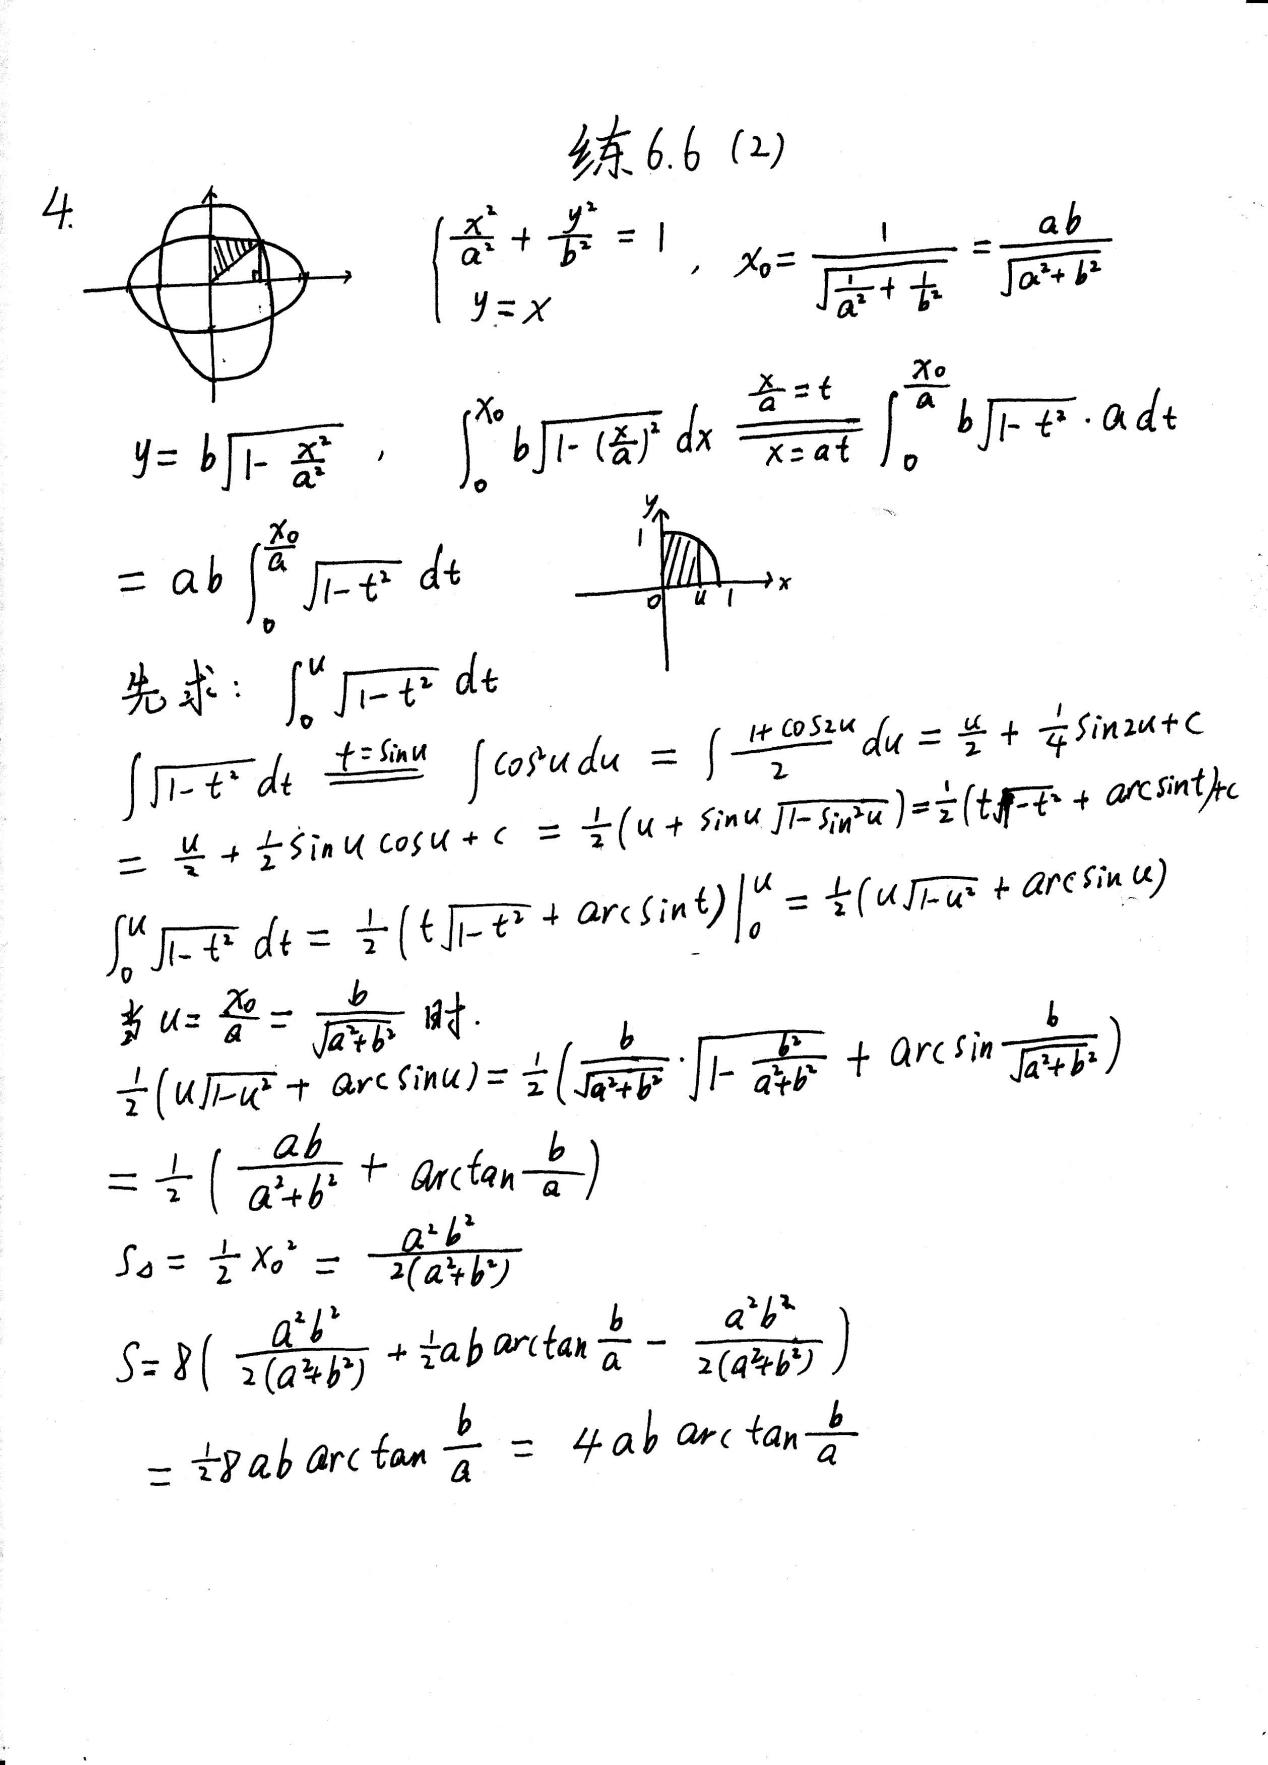 练6.6 (2)
4.
{ x²/a² + y²/b² = 1
y = x , x₀ = 1/√(1/a² + 1/b²) = ab/√(a²+b²)
y = b√(1 - x²/a²) , ∫₀^{x₀} b√(1-(x/a)²) dx =(x/a = t, x = at)= ∫₀^{x₀/a} b√(1-t²)·a dt
= ab ∫₀^{x₀/a} √(1-t²) dt
y 1 0 u 1 x
先求: ∫₀^u √(1-t²) dt
∫√(1-t²) dt =(t=sinu)= ∫cos²u du = ∫ (1+cos2u)/2 du = u/2 + 1/4 sin2u + c
= u/2 + 1/2 sinu cosu + c = 1/2(u + sinu √(1-sin²u)) = 1/2(t√(1-t²) + arcsint)+c
∫₀^u √(1-t²) dt = 1/2(t√(1-t²) + arcsint)|₀^u = 1/2(u√(1-u²) + arcsinu)
当 u = x₀/a = b/√(a²+b²) 时.
1/2(u√(1-u²) + arcsinu) = 1/2(b/√(a²+b²) · √(1 - b²/(a²+b²)) + arcsin b/√(a²+b²))
= 1/2(ab/(a²+b²) + arctan b/a)
S△ = 1/2 x₀² = a²b²/2(a²+b²)
S = 8(a²b²/2(a²+b²) + 1/2 ab arctan b/a - a²b²/2(a²+b²))
= 1/2 8ab arctan b/a = 4ab arctan b/a